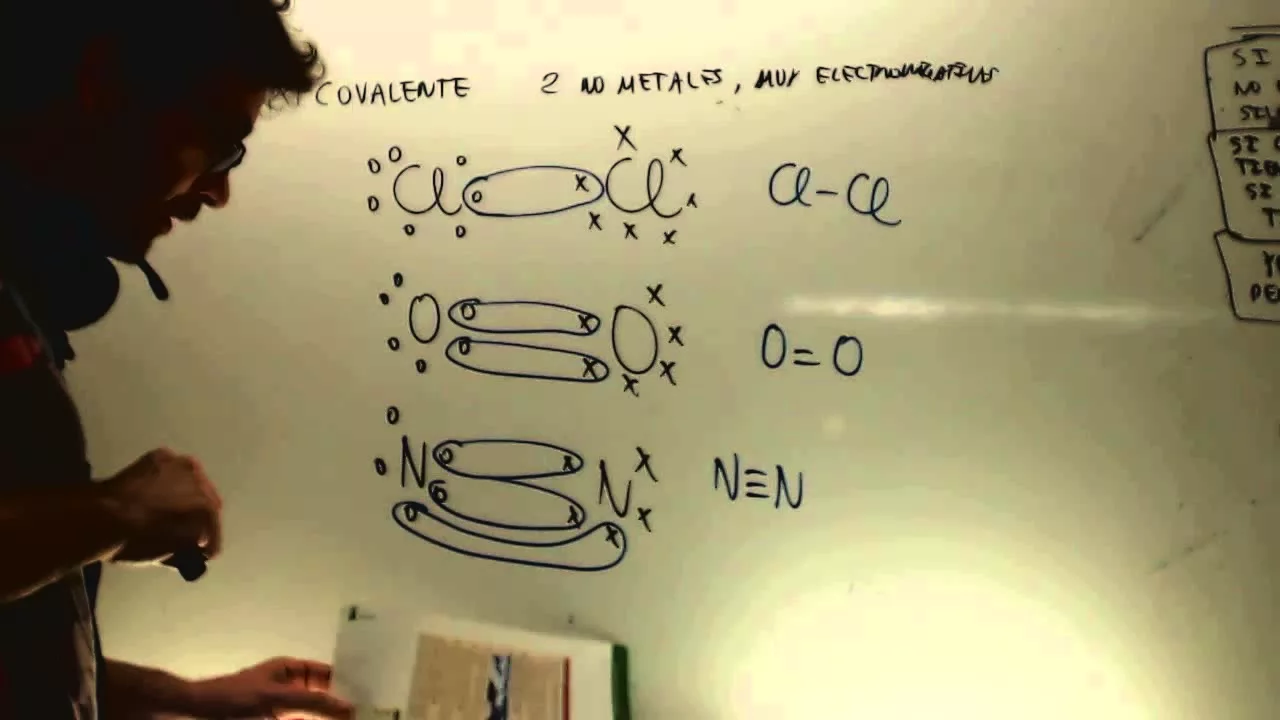 COVALENTE 2 NO METALES, MUY ELECTRONEGATIVOS
Cl Cl Cl-Cl
O O O=O
N N N≡N
SI
NO
SI
SI
T